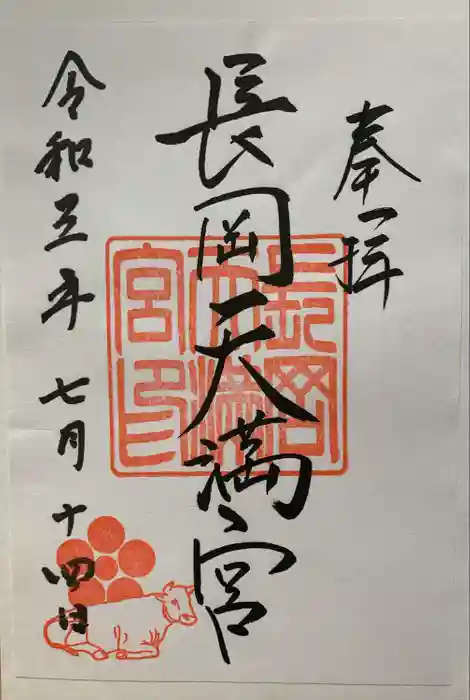 奉拝
長岡天満宮
令和三年七月十四日
長岡天満宮印